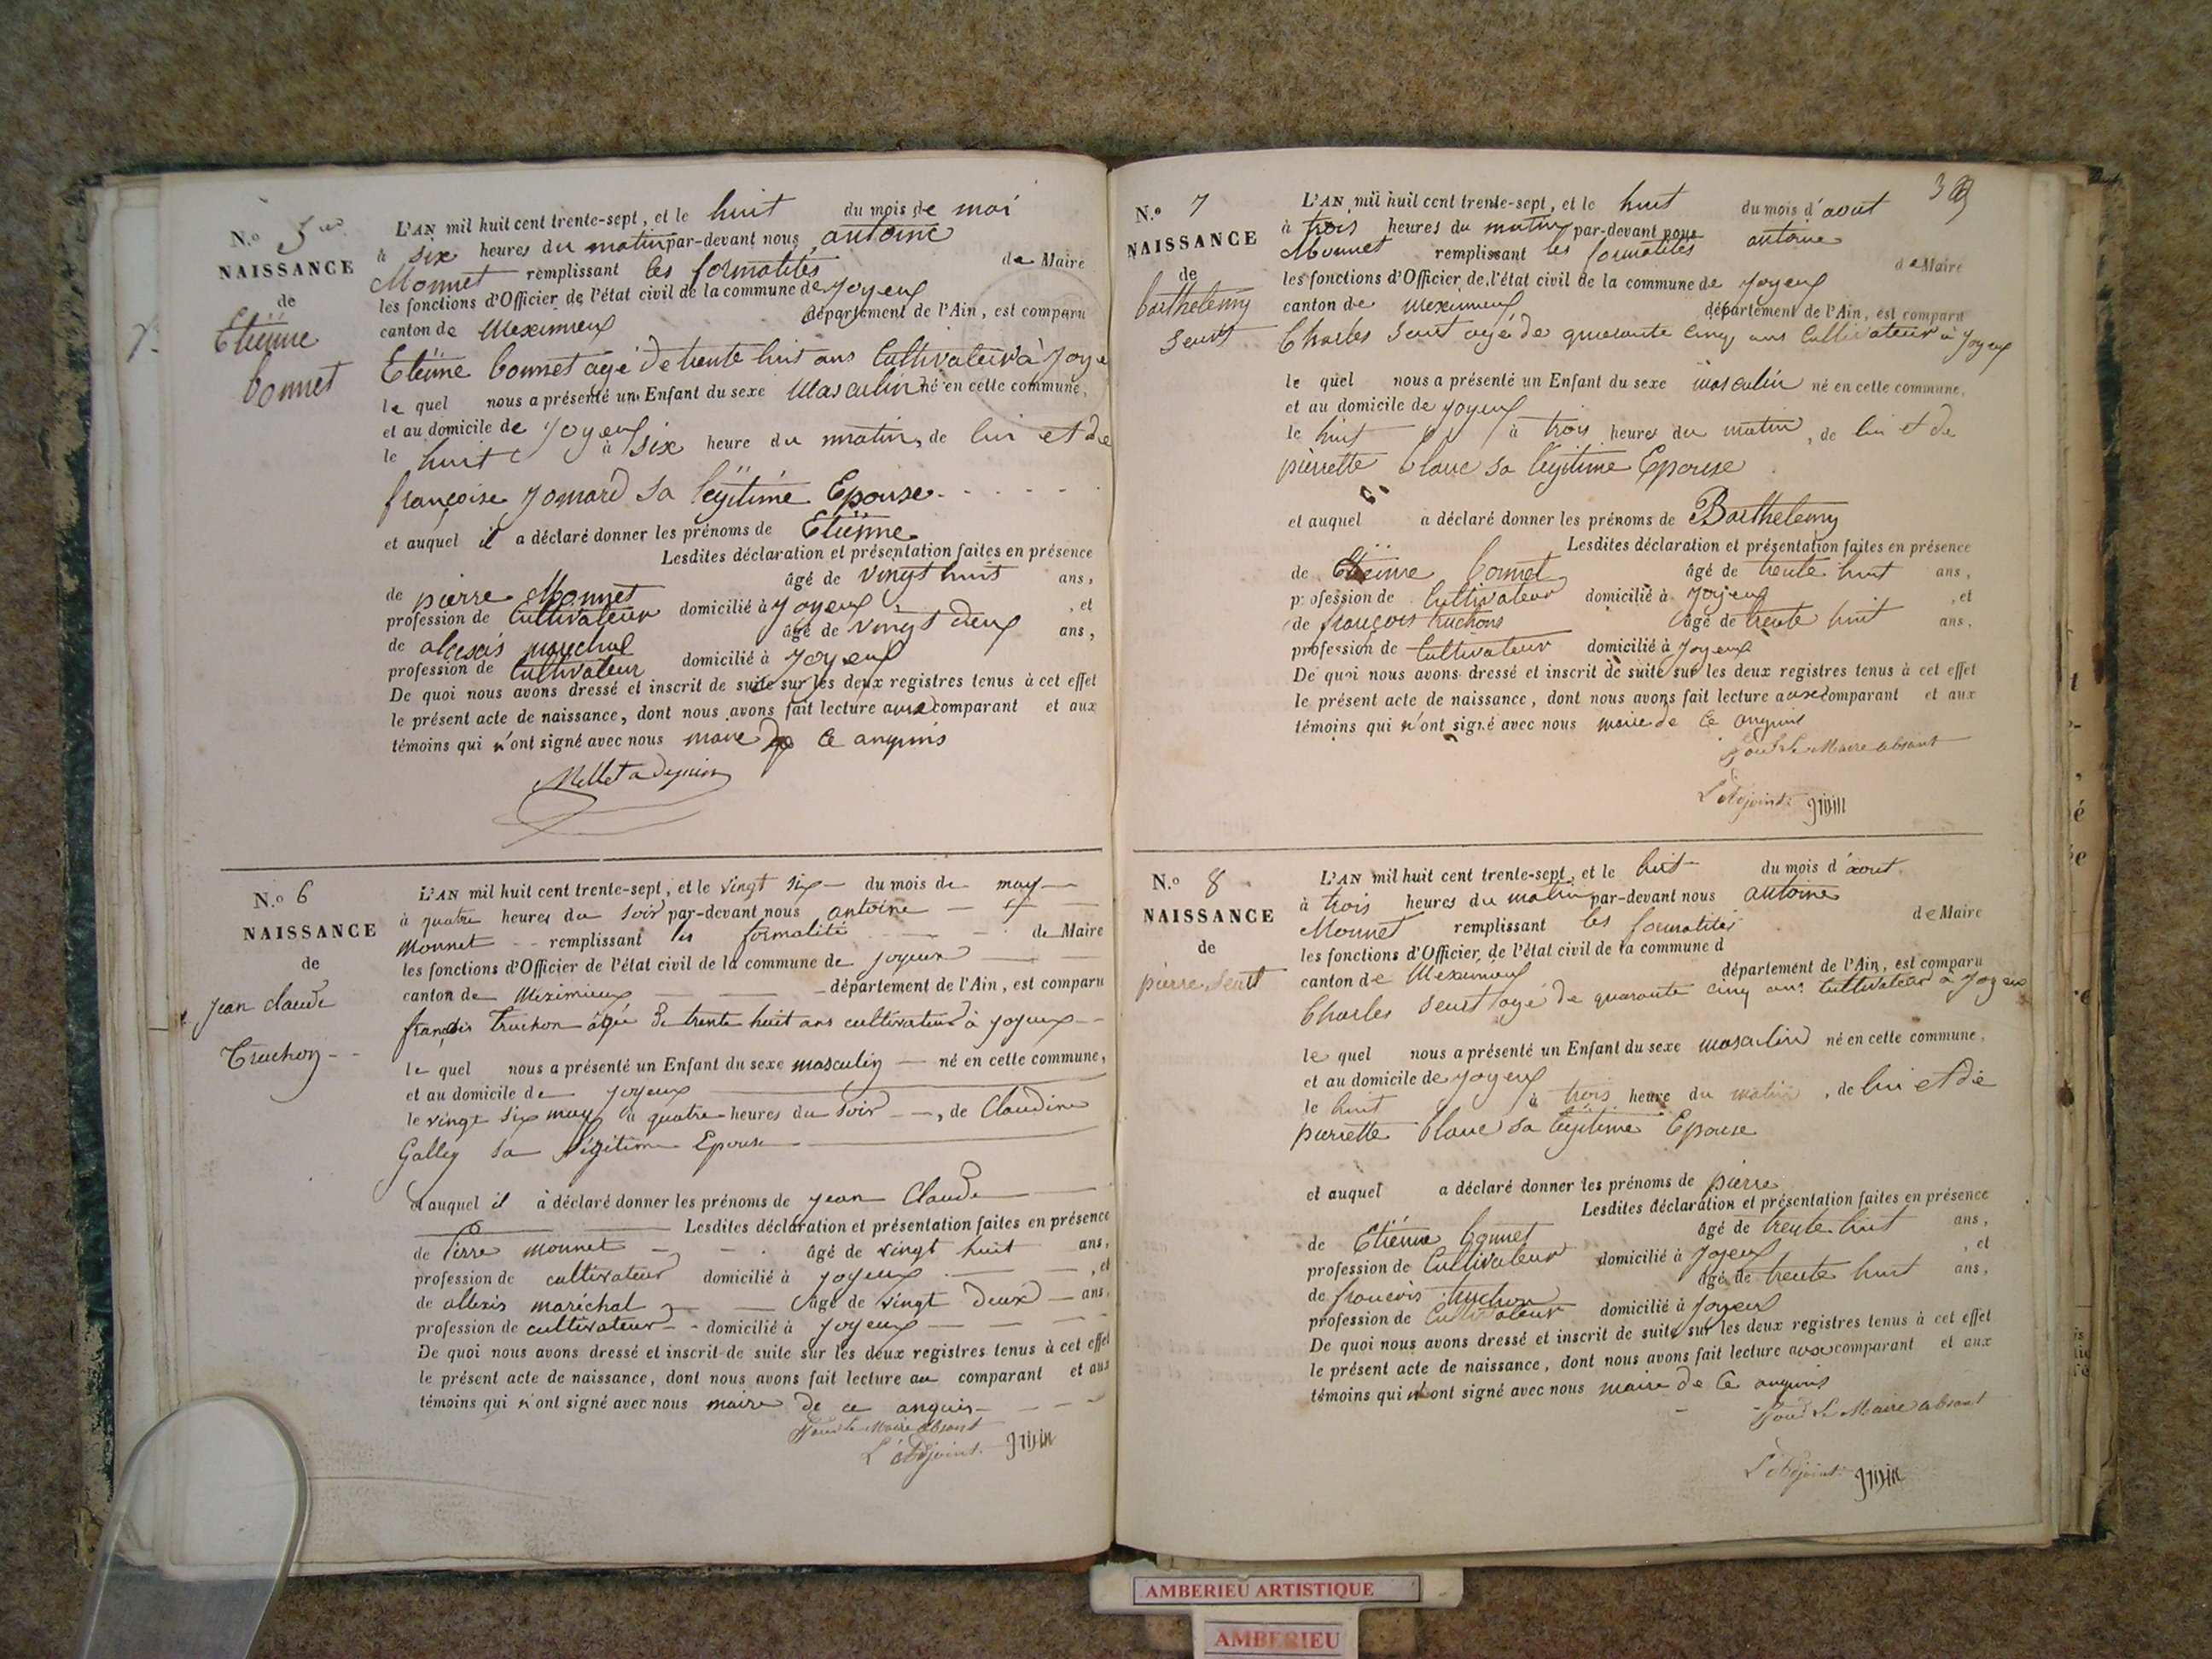 N.o 5
NAISSANCE
de
Etiënne
bonnet
L'AN mil huit cent trente-sept, et le huit du mois de mai
à six heures du matin par-devant nous antoine
Monnet remplissant les formalités de Maire
les fonctions d'Officier de l'état civil de la commune de Joyeux
canton de Meximieux département de l'Ain, est comparu
Etiënne bonnet agé de trente huit ans Cultivateur à Joye
le quel nous a présenté un Enfant du sexe Masculin né en cette commune,
et au domicile de Joyeux
le huit à six heure du matin, de lui et de
françoise Jomard sa légitime Epouse
et auquel il a déclaré donner les prénoms de Etiënne
Lesdites déclaration et présentation faites en présence
de pierre Monnet âgé de vingt huit ans,
profession de Cultivateur domicilié à Joyeux, et
de marechal âgé de vingt deux ans,
profession de Cultivateur domicilié à Joyeux
De quoi nous avons dressé et inscrit de suite sur les deux registres tenus à cet effet
le présent acte de naissance, dont nous avons fait lecture aux comparant et aux
témoins qui n'ont signé avec nous maire de ce
N.o 6
NAISSANCE
de
jean claude
Truchon
L'AN mil huit cent trente-sept, et le vingt six du mois de may
à quatre heures du soir par-devant nous antoine
monnet remplissant les formalité de Maire
les fonctions d'Officier de l'état civil de la commune de joyeux
canton de Meximieux département de l'Ain, est comparu
françois Truchon âgé de trente huit ans cultivateur à joyeux
le quel nous a présenté un Enfant du sexe masculin né en cette commune,
et au domicile de joyeux
le vingt six may à quatre heures du soir, de Claudine
Galley sa légitime Epouse
et auquel il a déclaré donner les prénoms de jean Claude
Lesdites déclaration et présentation faites en présence
de Pierre monnet âgé de vingt huit ans,
profession de cultivateur domicilié à joyeux, et
de allexis maréchal âgé de vingt deux ans,
profession de cultivateur domicilié à joyeux
De quoi nous avons dressé et inscrit de suite sur les deux registres tenus à cet effet
le présent acte de naissance, dont nous avons fait lecture au comparant et aux
témoins qui n'ont signé avec nous maire de ce anquis
Pour le Maire absant
L'adjoint
N.o 7
NAISSANCE
de
barthelemy
Seust
L'AN mil huit cent trente-sept, et le huit du mois d'avout
à trois heures du matin par-devant nous antoine
Monnet remplissant les formalités de Maire
les fonctions d'Officier de l'état civil de la commune de Joyeux
canton de Meximieux département de l'Ain, est comparu
Charles Seust agé de quarante cinq ans Cultivateur à Joyeux
le quel nous a présenté un Enfant du sexe masculin né en cette commune,
et au domicile de Joyeux
le huit à trois heures du matin, de lui et de
pierrette blanc sa légitime Epouse
et auquel a déclaré donner les prénoms de Barthelemy
Lesdites déclaration et présentation faites en présence
de Etiënne bonnet âgé de trente huit ans,
profession de Cultivateur domicilié à Joyeux, et
de françois truchons âgé de trente huit ans,
profession de Cultivateur domicilié à Joyeux
De quoi nous avons dressé et inscrit de suite sur les deux registres tenus à cet effet
le présent acte de naissance, dont nous avons fait lecture aux comparant et aux
témoins qui n'ont signé avec nous maire de ce
Pour le Maire absant
L'adjoint
N.o 8
NAISSANCE
de
pierre Seust
L'AN mil huit cent trente-sept, et le huit du mois d'aout
à trois heures du matin par-devant nous antoine
Monnet remplissant les formalités de Maire
les fonctions d'Officier de l'état civil de la commune d
canton de Meximieux département de l'Ain, est comparu
Charles Seust agé de quarante cinq ans Cultivateur à Joyeux
le quel nous a présenté un Enfant du sexe masculin né en cette commune,
et au domicile de Joyeux
le huit à trois heure du matin, de lui et de
pierrette blanc sa légitime Epouse
et auquel a déclaré donner les prénoms de pierre
Lesdites déclaration et présentation faites en présence
de Etiënne bonnet âgé de trente huit ans,
profession de Cultivateur domicilié à Joyeux, et
de françois truchon âgé de trente huit ans,
profession de Cultivateur domicilié à Joyeux
De quoi nous avons dressé et inscrit de suite sur les deux registres tenus à cet effet
le présent acte de naissance, dont nous avons fait lecture aux comparant et aux
témoins qui n'ont signé avec nous maire de ce
Pour le Maire absant
L'adjoint
AMBERIEU ARTISTIQUE
AMBERIEU